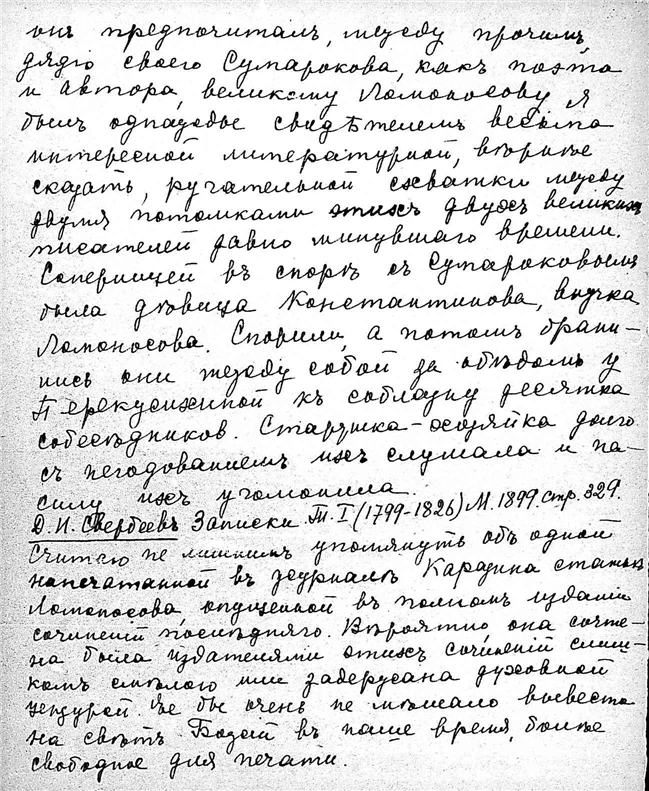 онъ предпочиталъ, между прочимъ,
дядю своего Сумарокова, какъ поэта
и автора, великому Ломоносову. Я
былъ однажды свидѣтелемъ весьма
интересной литературной, вѣрнѣе
сказать, ругательной схватки между
двумя потомками этихъ двухъ великихъ
писателей давно минувшаго времени.
Соперницей въ спорѣ съ Сумароковымъ
была дѣвица Константинова, внучка
Ломоносова. Спорили, а потомъ брани-
лись они между собой за обѣдомъ у
Перекусихиной къ соблазну десятка
собесѣдников. Старушка-хозяйка долго
съ негодованіемъ ихъ слушала и на-
силу ихъ угомонила.
Д.И. Свербеевъ Записки Т. I (1799-1826) М. 1899. стр. 329.
Считаю не лишнимъ упомянуть объ одной
напечатанной въ журналѣ Каразина статьѣ
Ломоносова, опущенной въ полномъ изданіи
сочиненій послѣдняго. Вѣроятно она сочте-
на была издателями этихъ сочиненій слиш-
комъ смѣлою или задержана духовной
цензурой. Ее бы очень не мѣшало вывести
на свѣтъ Божій въ наше время, болѣе
свободное для печати.